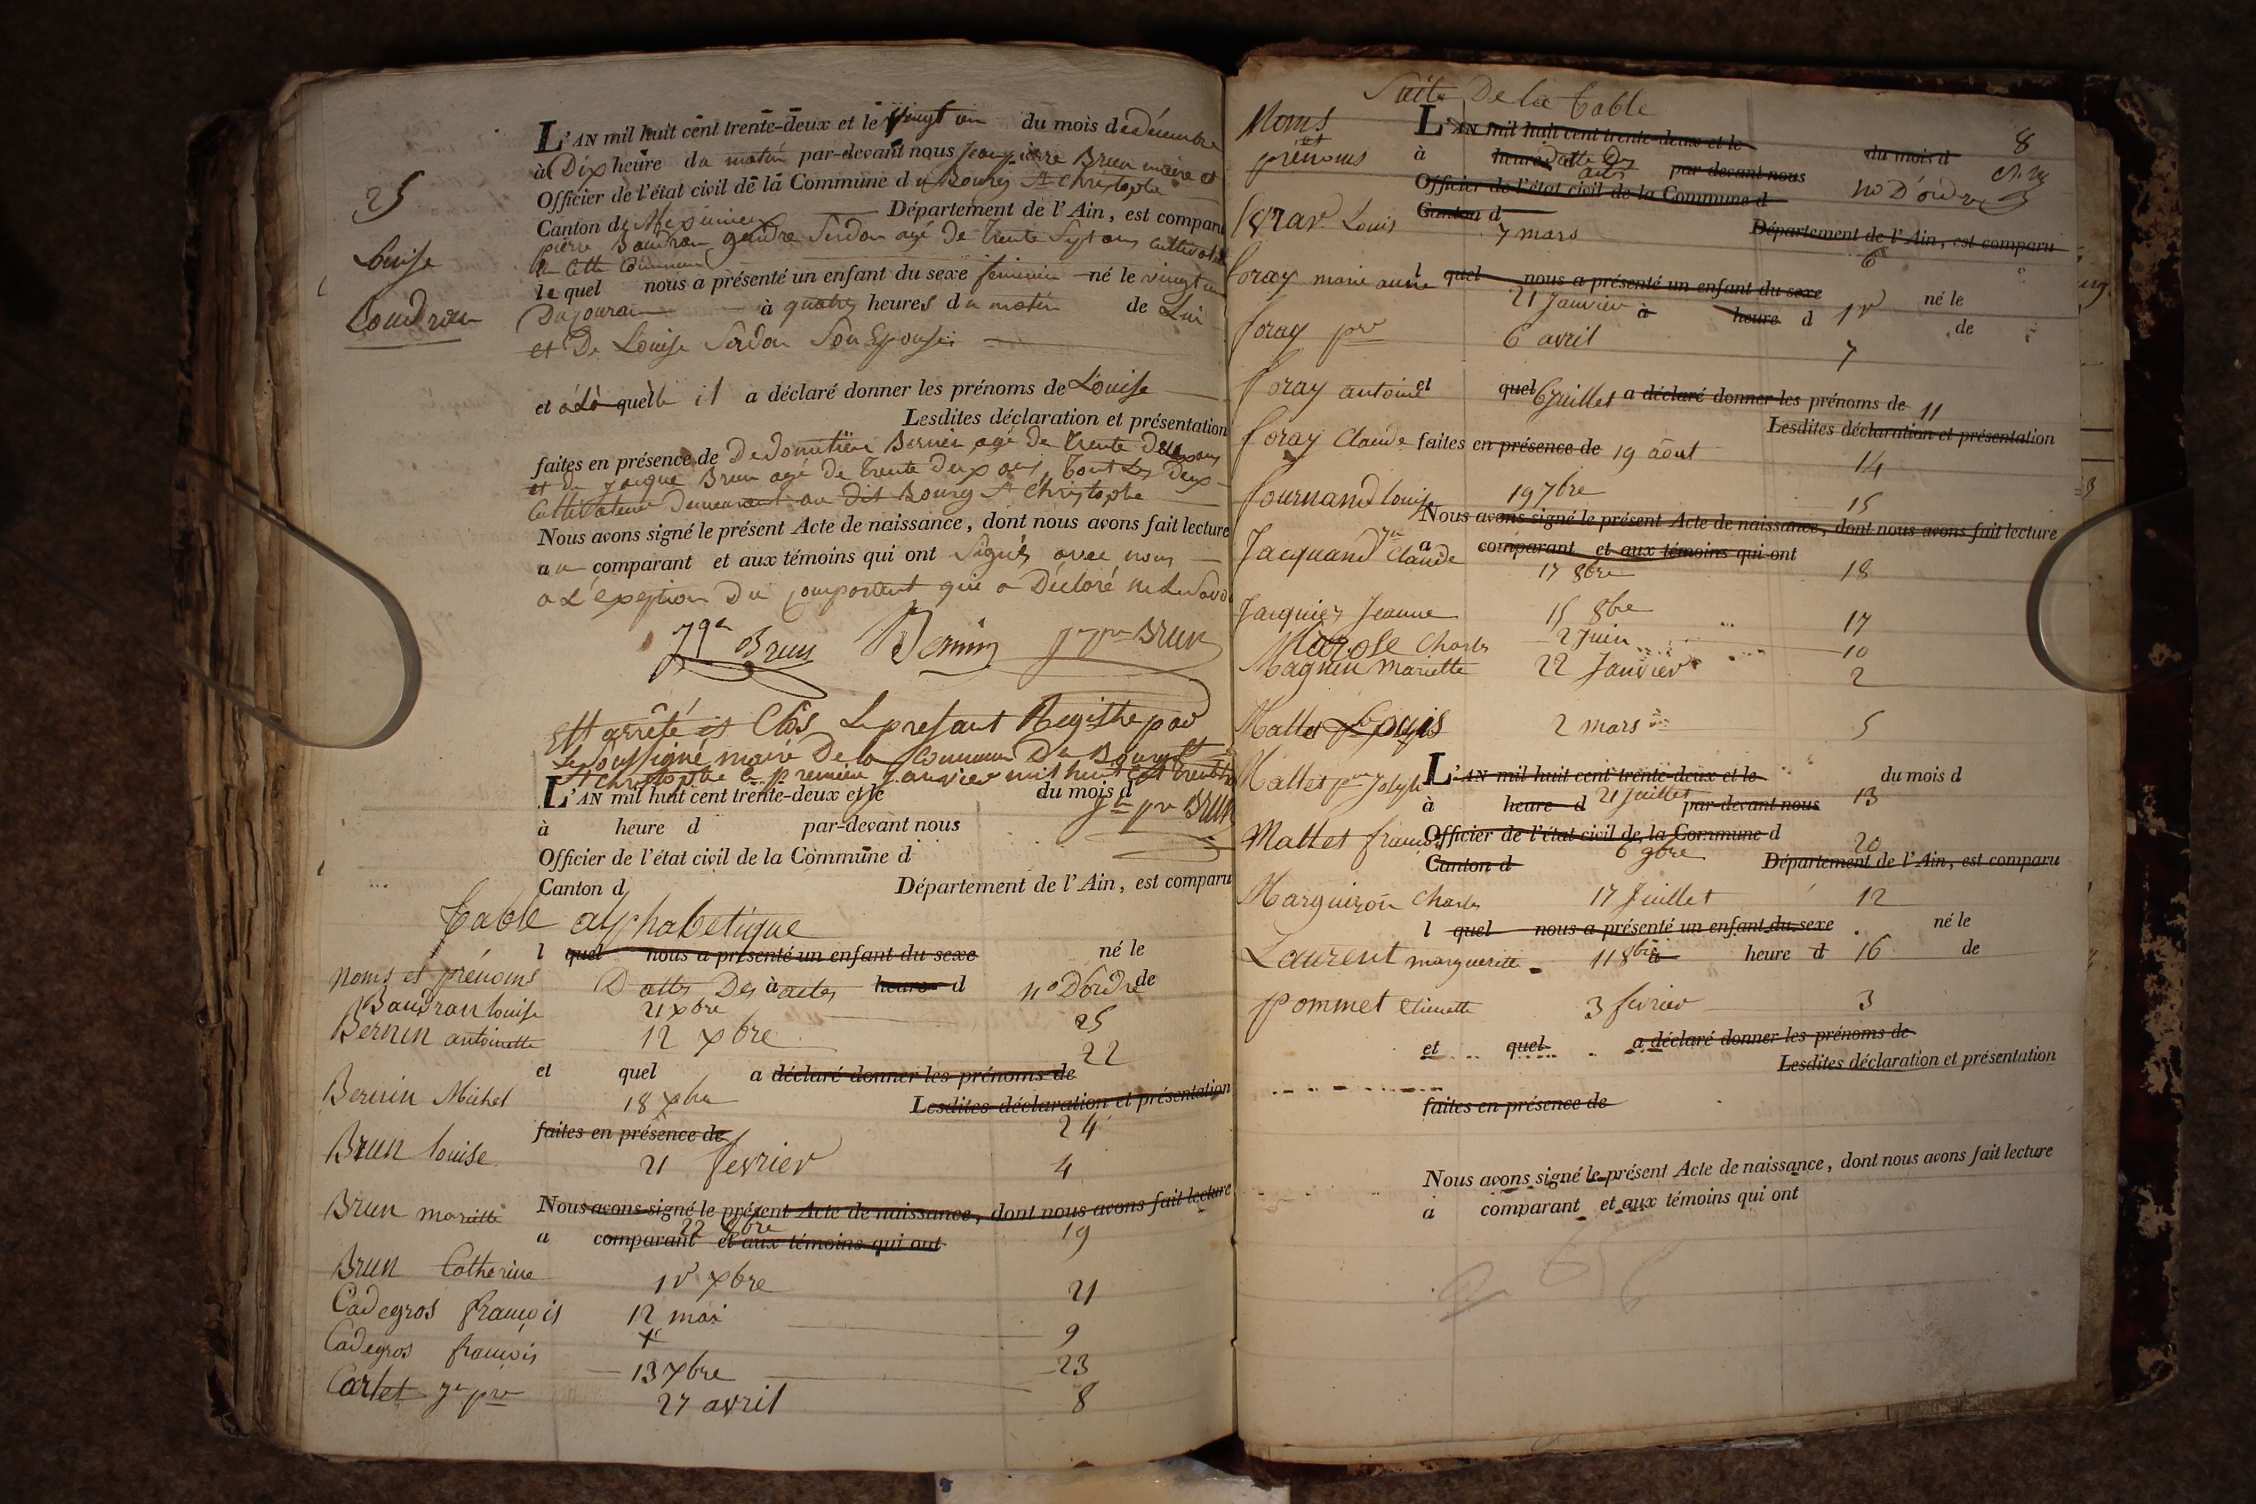 25
Louise
Coudran
L'AN mil huit cent trente-deux et le vingt un du mois de décembre
à Dix heure du matin par-devant nous jean pierre Brun maire et
Officier de l'état civil de la Commune de Bourg St Christophe
Canton de Meximieux Département de l'Ain, est comparu
pierre Baudran gendre Serdon agé de trente Sept ans cultivateur
de cette Commune
le quel nous a présenté un enfant du sexe feminin né le vingt un
Du jourai à quatre heures du matin de Lui
et De Louise Serdon Son Epouse
et à La quelle il a déclaré donner les prénoms de Louise
Lesdites déclaration et présentation
faites en présence de De Bernin agé de trente Deux ans
et de Jacque Brun agé de trente deux ans, tout Les Deux
Cultivateur Demeurant au dit Bourg St Christophe
Nous avons signé le présent Acte de naissance, dont nous avons fait lecture
au comparant et aux témoins qui ont Signés avec nous
a L'exeption Du comparant qui a Déclaré ne Le Savoir
Jqe Brun Bernin Jn pre Brun
Est arrêté et Clos Le present Registre par
Le Soussigné maire De la Commune De Bourg St
St Christophe le premier janvier mil huit cent trente
L'AN mil huit cent trente-deux et le du mois d
Jn pre Brun
à heure d par-devant nous
Officier de l'état civil de la Commune d
Canton d Département de l'Ain, est comparu
Table alphabetique
l quel nous a présenté un enfant du sexe né le
Noms et prénoms Dattes Des à actes heures d no D'ordre de
Baudran louise 21 xbre 25
Bernin antoinette 12 xbre 22
et quel a déclaré donner les prénoms de
Bernin Michel 18 xbre 24
Lesdites déclaration et présentation
faites en présence de
Brun louise 21 fevrier 4
Nous avons signé le présent Acte de naissance, dont nous avons fait lecture
Brun mariette 22 8bre 19
a comparant et aux témoins qui ont
Brun Catherine 1r xbre 21
Cadegros françois 12 mai 9
Cadegros françois 13 xbre 23
Carlet Jn pre 27 avril 8
Suite De la Table
Noms et prénoms
L'AN mil huit cent trente-deux et le du mois d 8
à heure d Datte Des actes par-devant nous
Officier de l'état civil de la Commune d no D'ordre
Canton d
Louis 7 mars 6
Département de l'Ain, est comparu
foray marie anne 21 Janvier 1r
l quel nous a présenté un enfant du sexe né le
à heure d de
foray pre 6 avril 7
foray antoine 6 Juillet 11
et quel a déclaré donner les prénoms de
Lesdites déclaration et présentation
foray Claude 19 août 14
faites en présence de
fournand louise 19 7bre 15
Nous avons signé le présent Acte de naissance, dont nous avons fait lecture
a comparant et aux témoins qui ont
Jacquand Jn Claude 17 8bre 18
Jacquier Jeanne 15 8bre 17
Marose Charles 2 Juin 10
Magnin Mariette 22 Janvier 2
Mallet Louis 2 mars 5
L'AN mil huit cent trente-deux et le du mois d
Mallet pre Joseph 21 Juillet 13
à heure d par-devant nous
Officier de l'état civil de la Commune d
Mallet francois 6 9bre 20
Canton d Département de l'Ain, est comparu
Marguiron Charles 17 Juillet 12
l quel nous a présenté un enfant du sexe né le
Laurent marguerite 11 8bre 16
à heure d de
pommet Etiennette 3 fevrier 3
et quel a déclaré donner les prénoms de
Lesdites déclaration et présentation
faites en présence de
Nous avons signé le présent Acte de naissance, dont nous avons fait lecture
a comparant et aux témoins qui ont